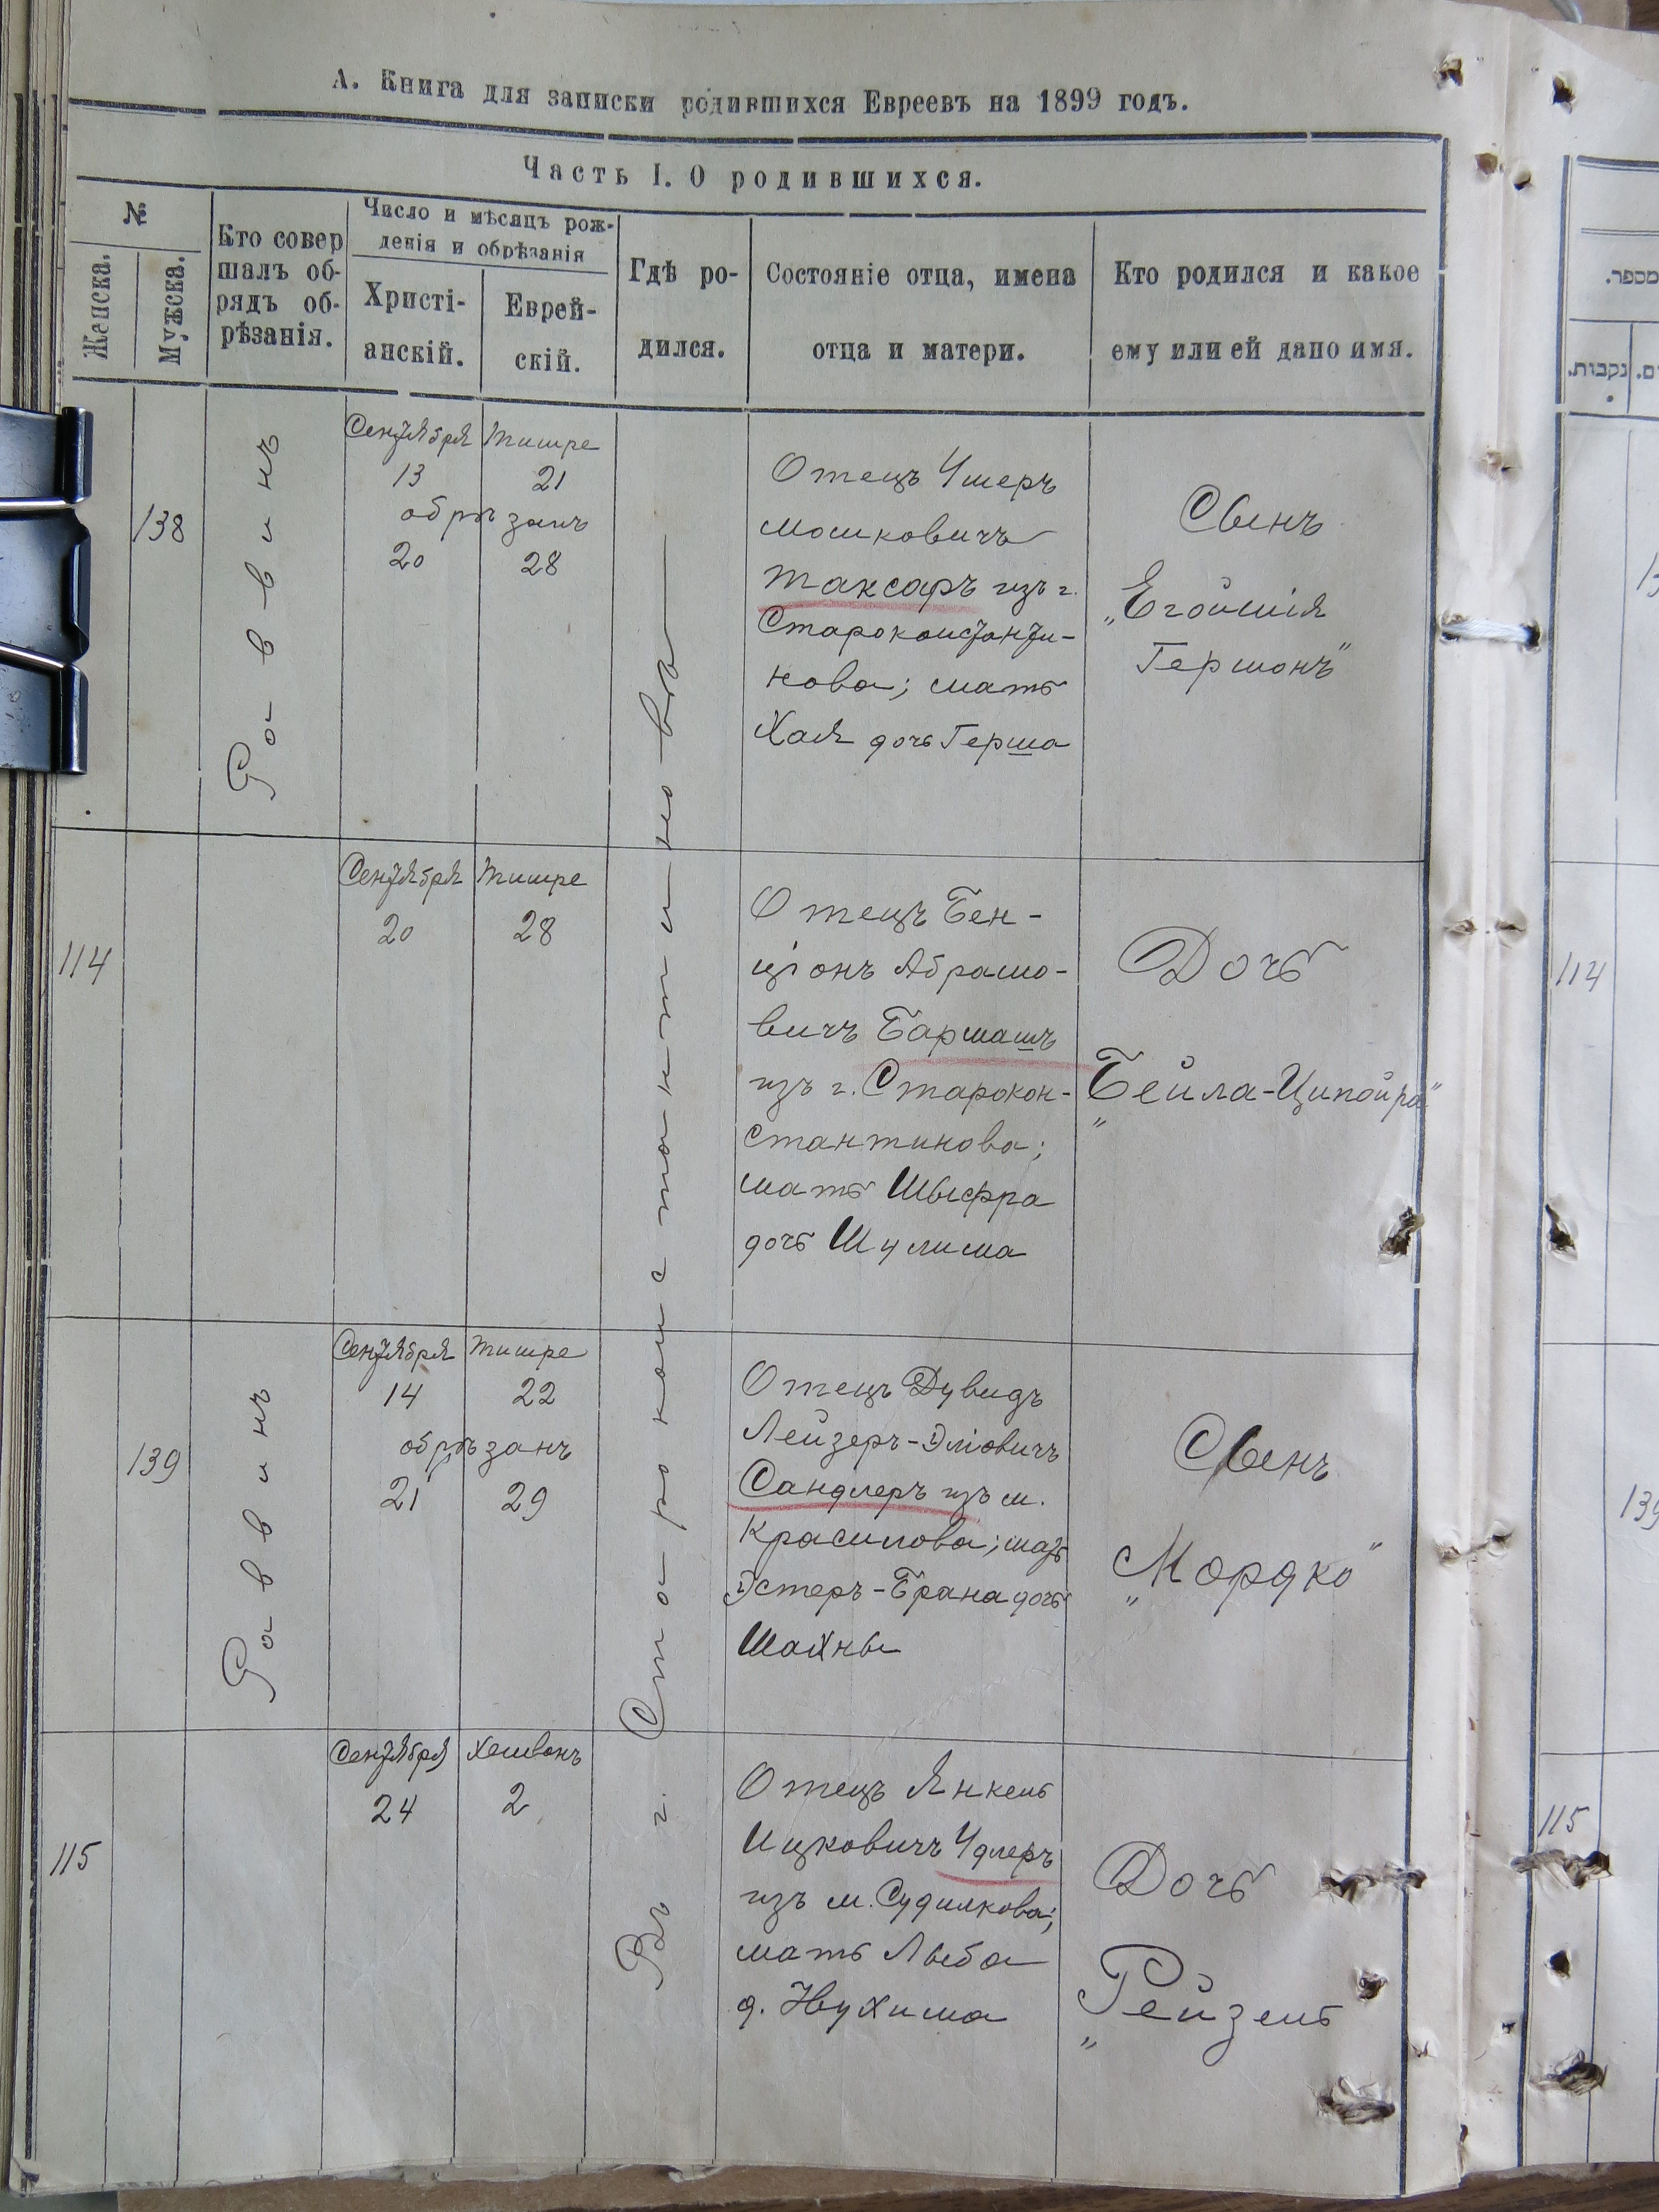 А. Книга для записки родившихся Евреевъ на 1899 годъ.
Часть I. О родившихся.
№
Женска.
Мужска.
Кто совер
шалъ об-
рядъ об-
рѣзанія.
Число и мѣсяцъ рож-
денія и обрѣзанія
Христі-
анскій.
Еврей-
скій.
Гдѣ ро-
дился.
Состояніе отца, имена
отца и матери.
Кто родился и какое
ему или ей дано имя.
מספר.
נקבות.
138
Раввинъ
Сентября Тишре
13 21
обрѣзанъ
20 28
Въ г. Староконстантиновѣ
Отецъ Ушеръ
Мошковичъ
Таксаръ изъ г.
Староконстанти-
нова; мать
Хая дочь Герша
Сынъ
„Егойшія
Гершонъ"
114
Сентября Тишре
20 28
Отецъ Бен-
ціонъ Абрамо-
вичъ Бармашъ
изъ г. Старокон-
стантинова;
мать Шыфра
дочь Шулима
Дочь
„Бейла-Ципойра"
114
139
Раввинъ
Сентября Тишре
14 22
обрѣзанъ
21 29
Отецъ Дувидъ
Лейзеръ-Эліовичъ
Сандлеръ изъ м.
Красилова; мать
Эстеръ-Брана дочь
Шахны
Сынъ
„Мордко"
139
115
Сентября Хешвонъ
24 2
Отецъ Янкель
Ицковичъ Удлеръ
изъ м. Судилкова;
мать Лыба
д. Нухима
Дочь
„Рейзель"
115